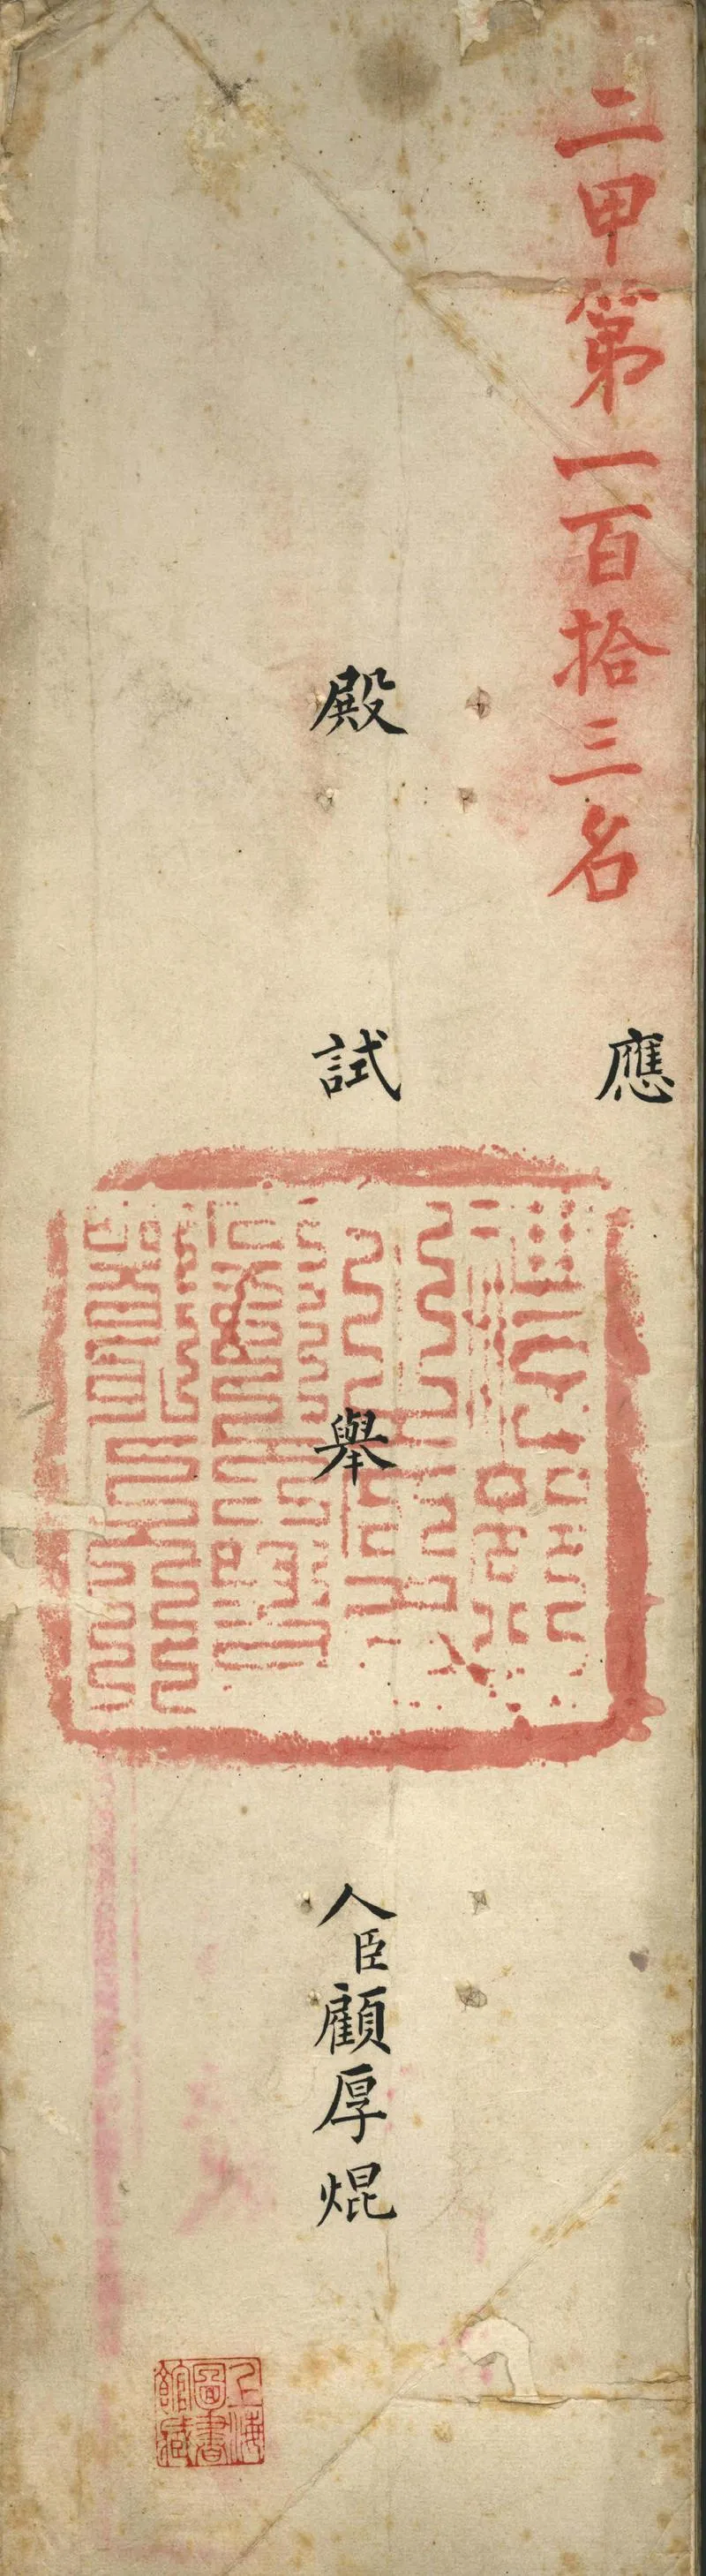 二甲第一百拾三名
應
殿試舉人臣顧厚焜
上海圖書館藏